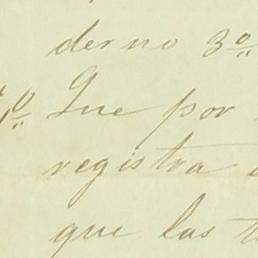 derno 3º
Que por
registra
que las